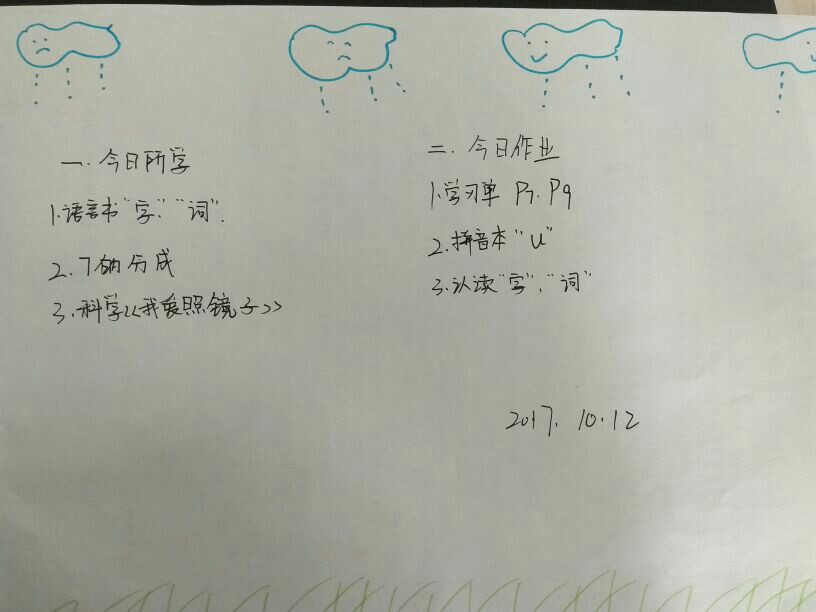 一.今日所学
1.语言书“字”.“词”.
2.7的分成
3.科学《我爱照镜子》
二.今日作业
1.学习单 P7.P9
2.拼音本“u”
3.认读“字”、“词”
2017.10.12